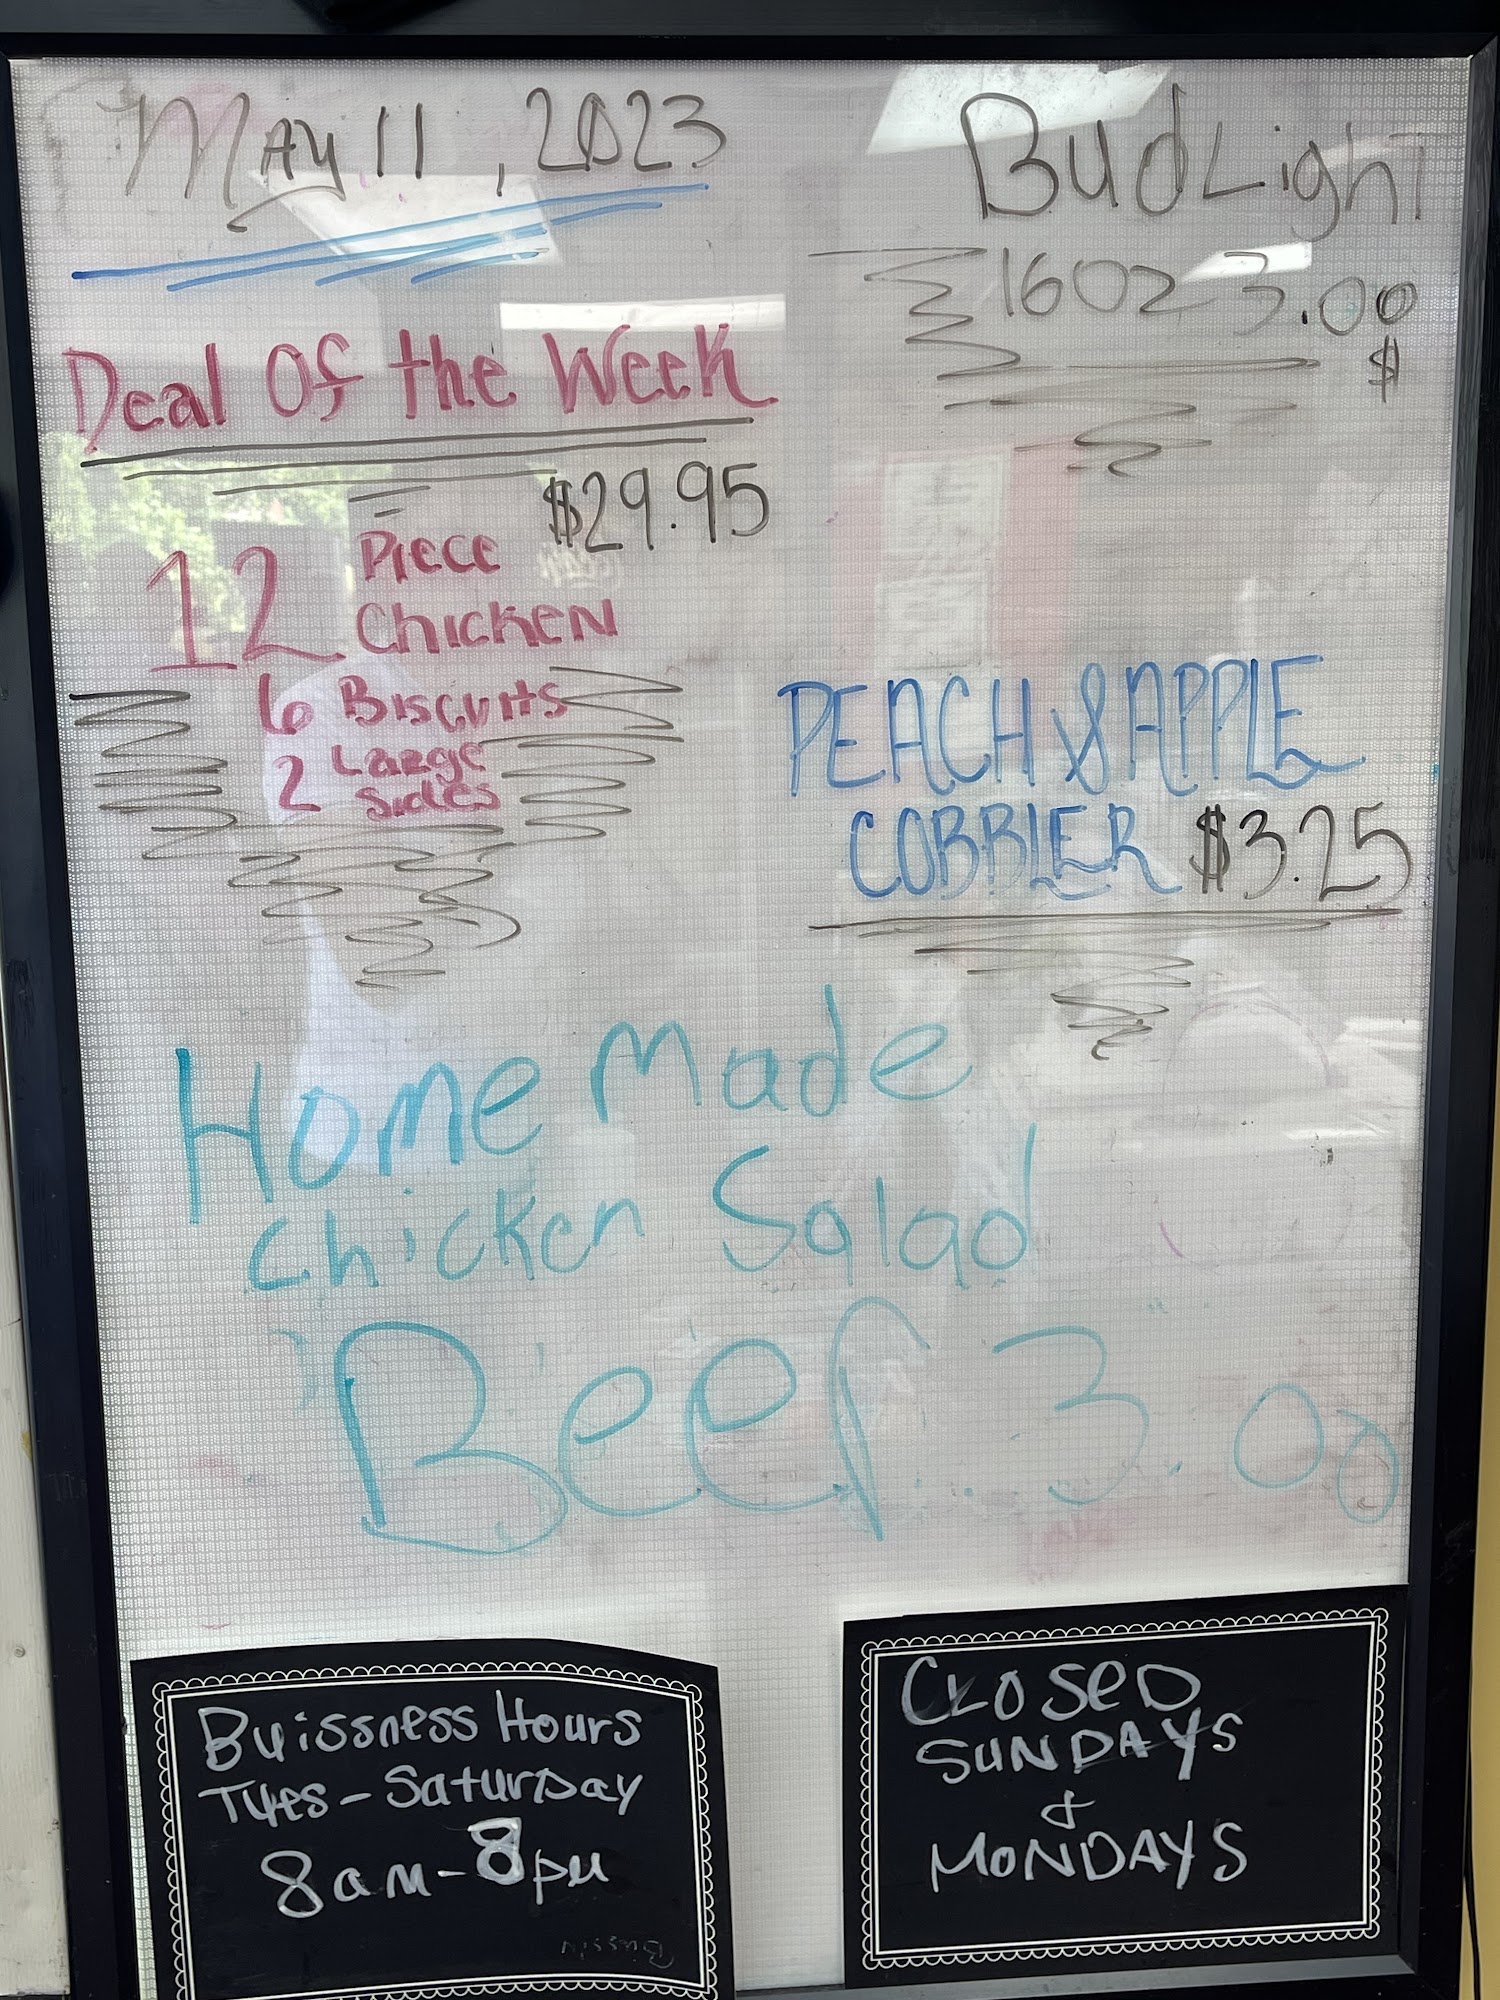 May 11, 2023
Deal Of the Week
$29.95
12 Piece
Chicken
6 Biscuits
2 Large
Sides
BudLight
16oz 3.00
$
PEACH & APPLE
COBBLER $3.25
Home Made
Chicken Salad
Beer 3.00
Buissness Hours
Tues-Saturday
8am-8pm
CLOSED
SUNDAYS
&
MONDAYS